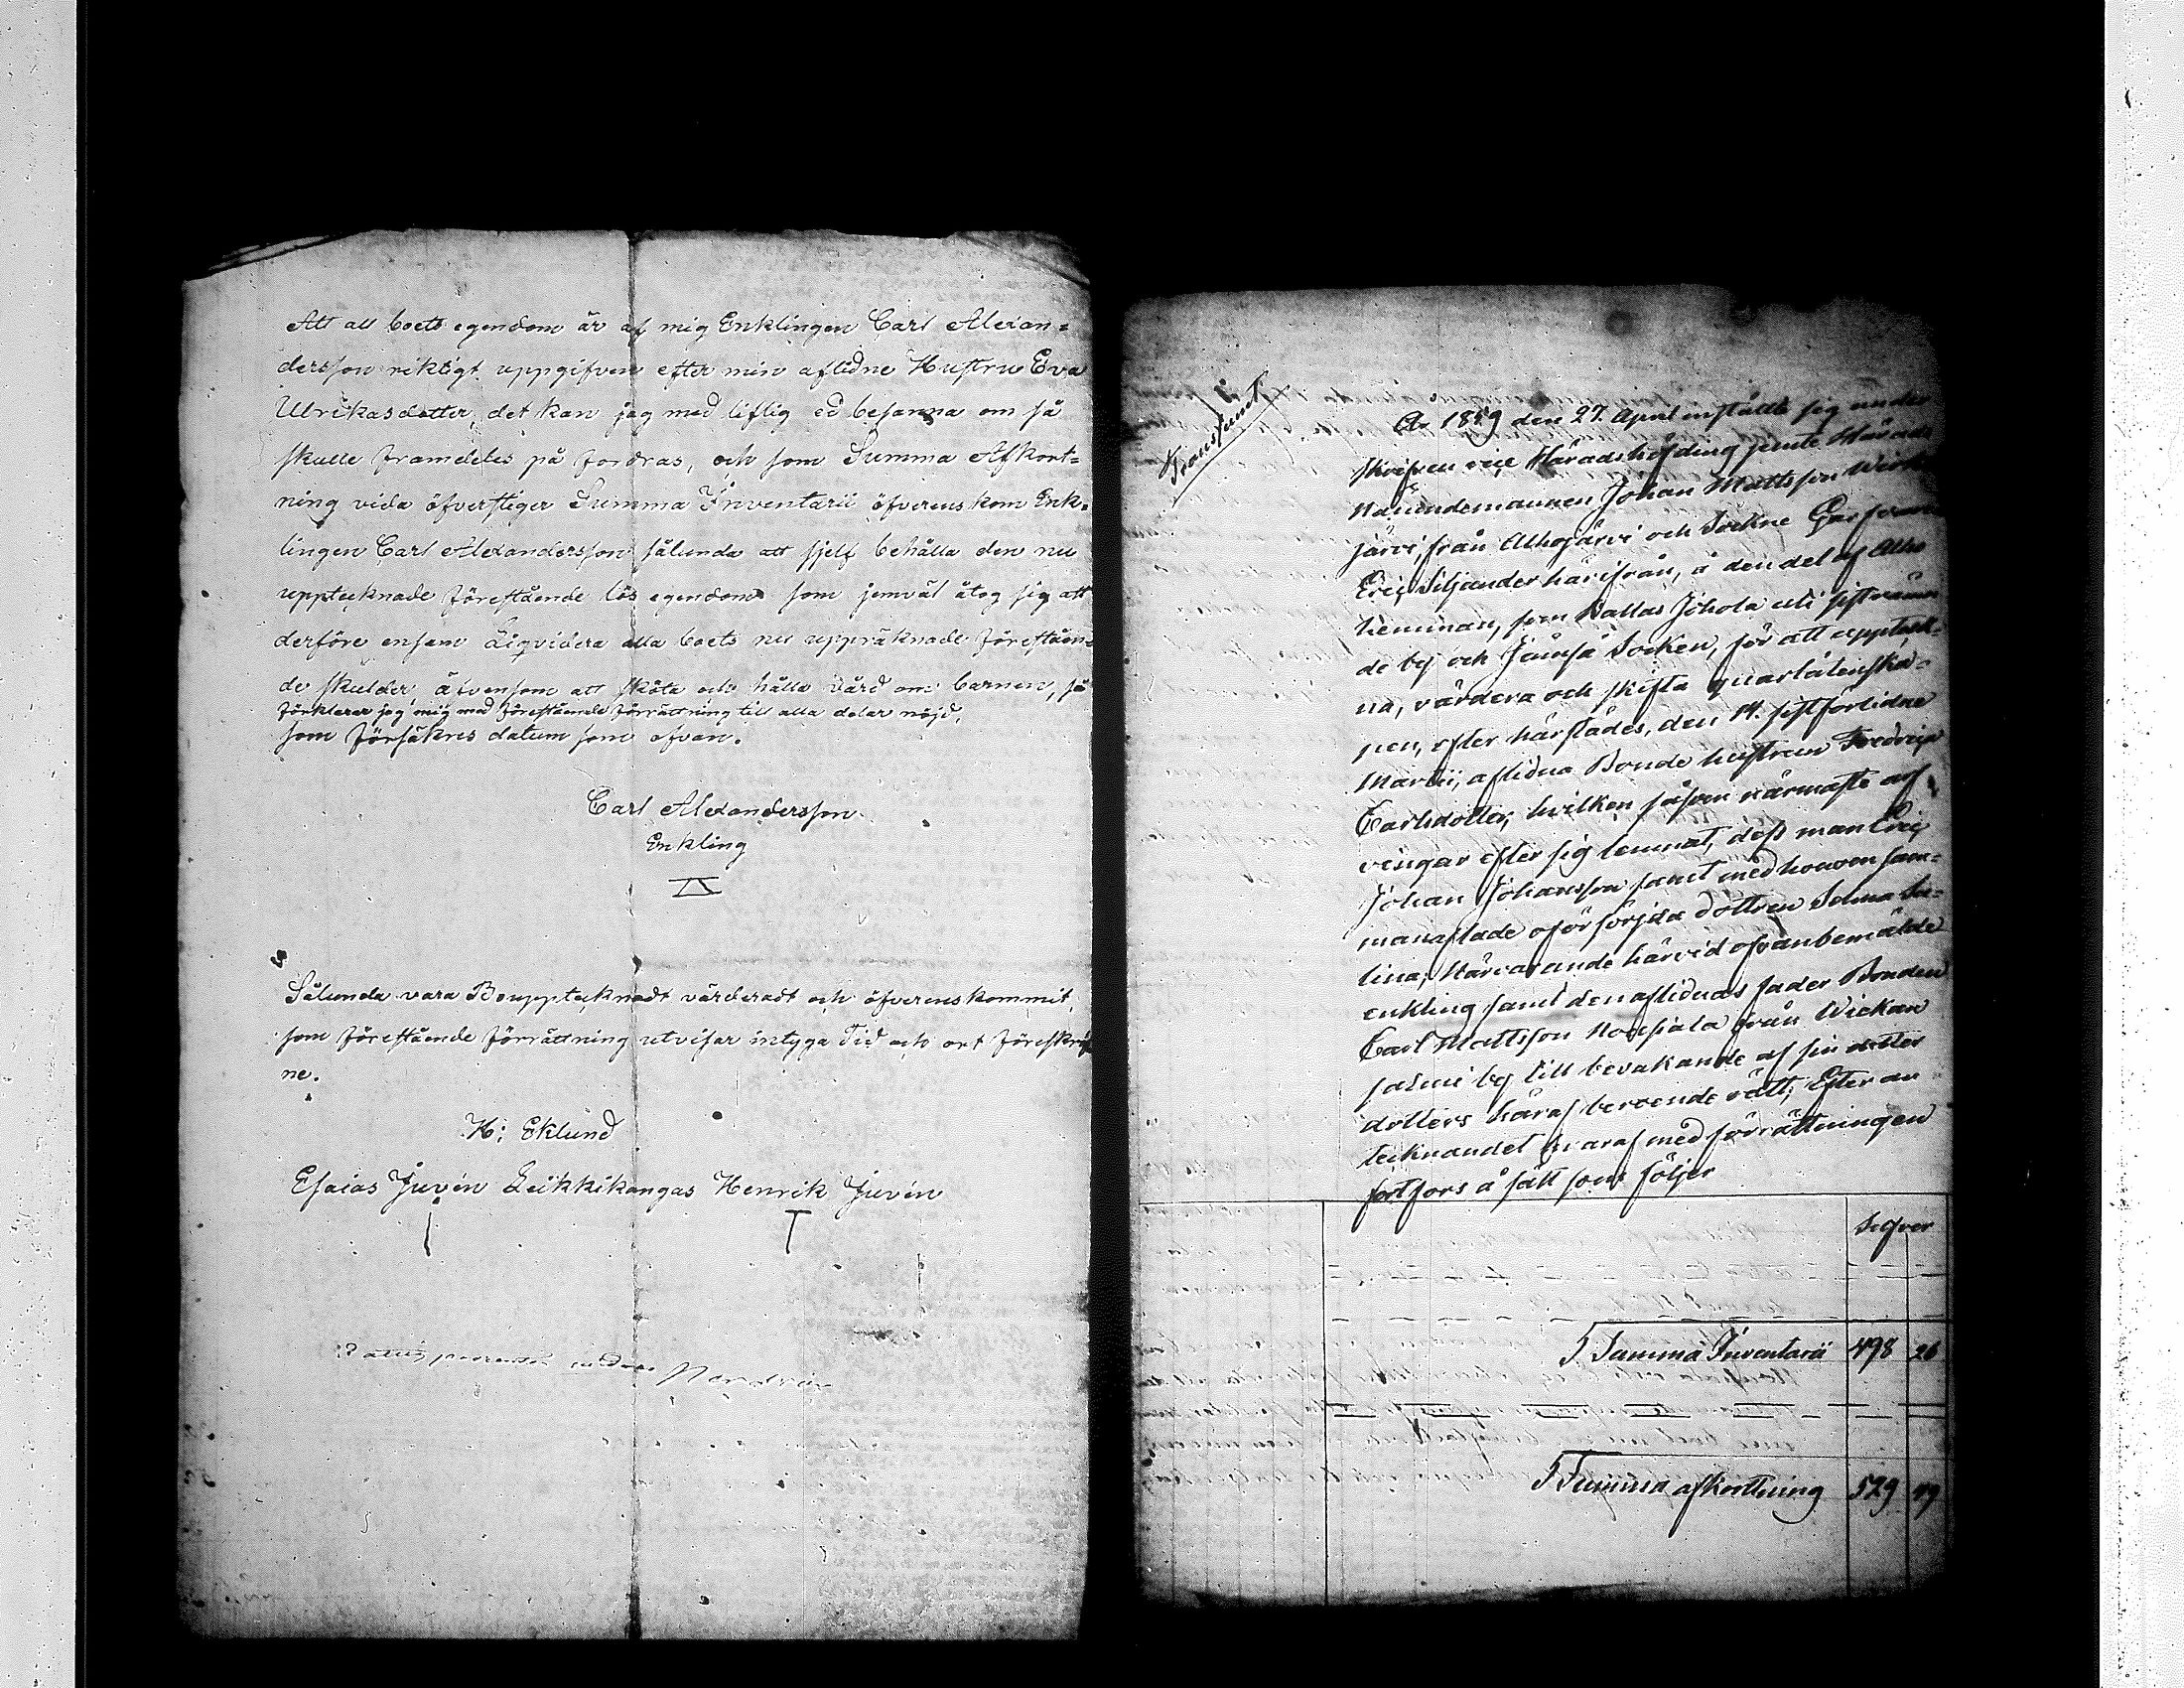 Att all boets egendom är af mig Enklingen Carl Alexan=
dersson riktigt uppgifven efter min aflidne Hustru Eva
Ulrikasdotter, det kan jag med liflig ed besanna om så
skulle framdeles på fordras, och som Summa Afkort=
ning vida öfverstiger Summa Inventarii öfverenskom Enk=
lingen Carl Alexandersson sålunda att sjelf behålla den nu
upptecknade förestående lös egendom som jemväl åtog sig att
derföre ensam Liqvidera alla boets nu uppräknade föreståen=
de skulder, äfvensom att sköta och hålla vård om barnen, så
förklarar jag mig med förestående förrättning till alla delar nöjd,
som försäkres datum som ofvan.
Carl Alexandersson
Enkling
Sålunda vara Bouppteknadt värderadt och öfverenskommit,
som förestående förrättning utvisar intyga Tid och ort föreskrif
ne.
H: Eklund
Esaias Juvén Leikkikangas Henrik Juvén
Transsumt
År 1859 den 27. April instälte sig under
skrifven vice Häradshöfding jemte Härads
Nämndemannen Johan Mattsson Wirk
järvi, från Alhojärvi och Sockne
Eric Siljander härifrån, å den del af Alho
hemman, som kallas Jokola uti sistnämn
de by och Jämsä Socken, för att uppteck=
na, värdera och skifta qvarlåtenska=
pen, efter härstädes, den 14. sistförlidne
Martii, aflidna Bonde hustrun Fredrica
Carlsdotter, hvilken såsom närmaste arf
vingar efter sig lemnat, dess man Eric
Johan Johansson samt med honom sam=
manaflade oförsörjda dottren Selma Se=
lina; Närvarande härvid ofvanbemälde
enkling samt den aflidnas fader Bonden
Carl Mattsson Noisiala från Wickan
salmi by till bevakande af sin dotter
dotters häraf beroende rätt; Efter an
tecknandet hvaraf med förrättningen
fortfors å sätt som följer
Silfver
Summa Inventarii 498 26
Summa afkortning 529 49